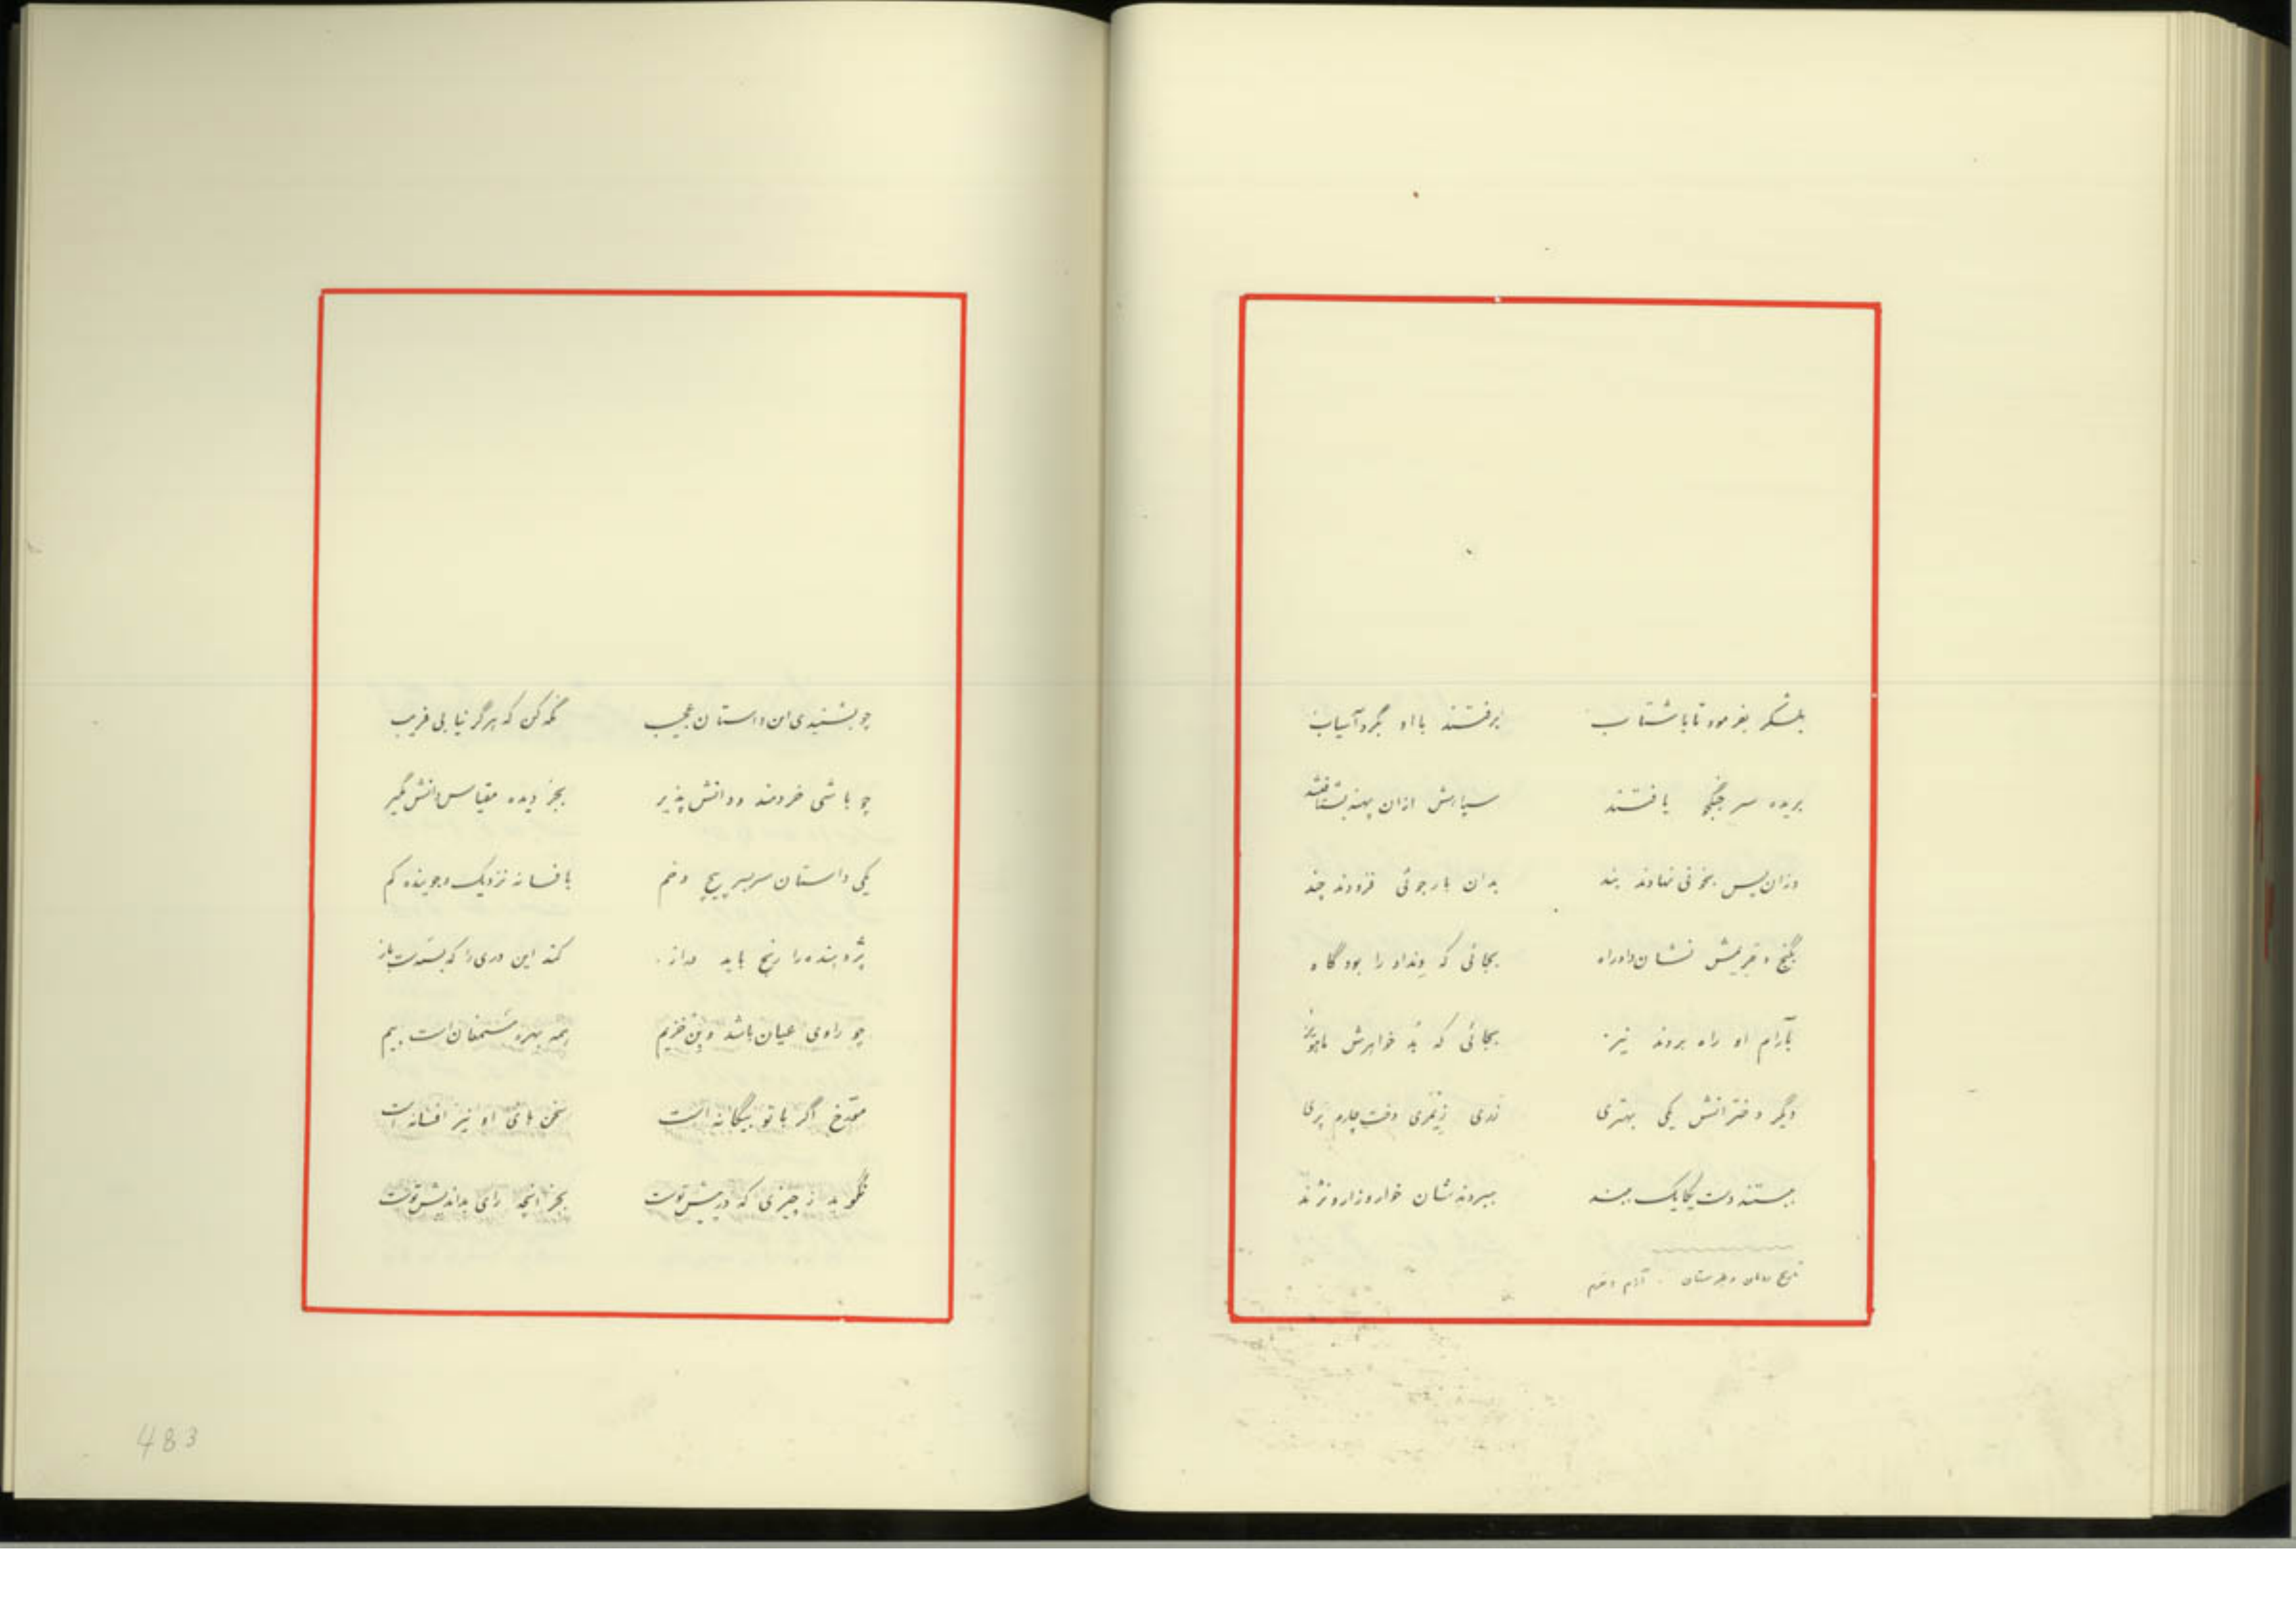 بلشکر بفرمود تا با شتاب برفتند با او بگرد آسیاب
بریده سر جنگجو یافتند سپاهش ازان پهنه بشتافتند
وزان پس بخونی نهادند بند بدان بارجوئی فزودند چند
بگنج و نشان داد راه بجائی که ونداد را بود گاه
بآرام او راه بردند نیز بجائی که بد خواهرش
دگر دخترانش یکی بهتری پری
ببستند دست یکایک ببند ببردندشان خوار و زار و نژند
تاریخ و طبرستان
چو بشنیدی این داستان عجیب نگه کن که هرگز نیابی فریب
چو باشی خردمند و دانش پذیر بجز دیده مقیاس دانش مگیر
یکی داستان سربسر پیچ و خم بافسانه نزدیک و جوینده کم
پژوهنده را رنج باید دراز کند این دری را که بسته‌ست باز
چو راوی عیان باشد و بیم
مورخ اگر با تو بیگانه است سخن های او نیز افسانه است
نگوید ز چیزی که در پیش توست بجز آنچه رای بداندیش توست
483